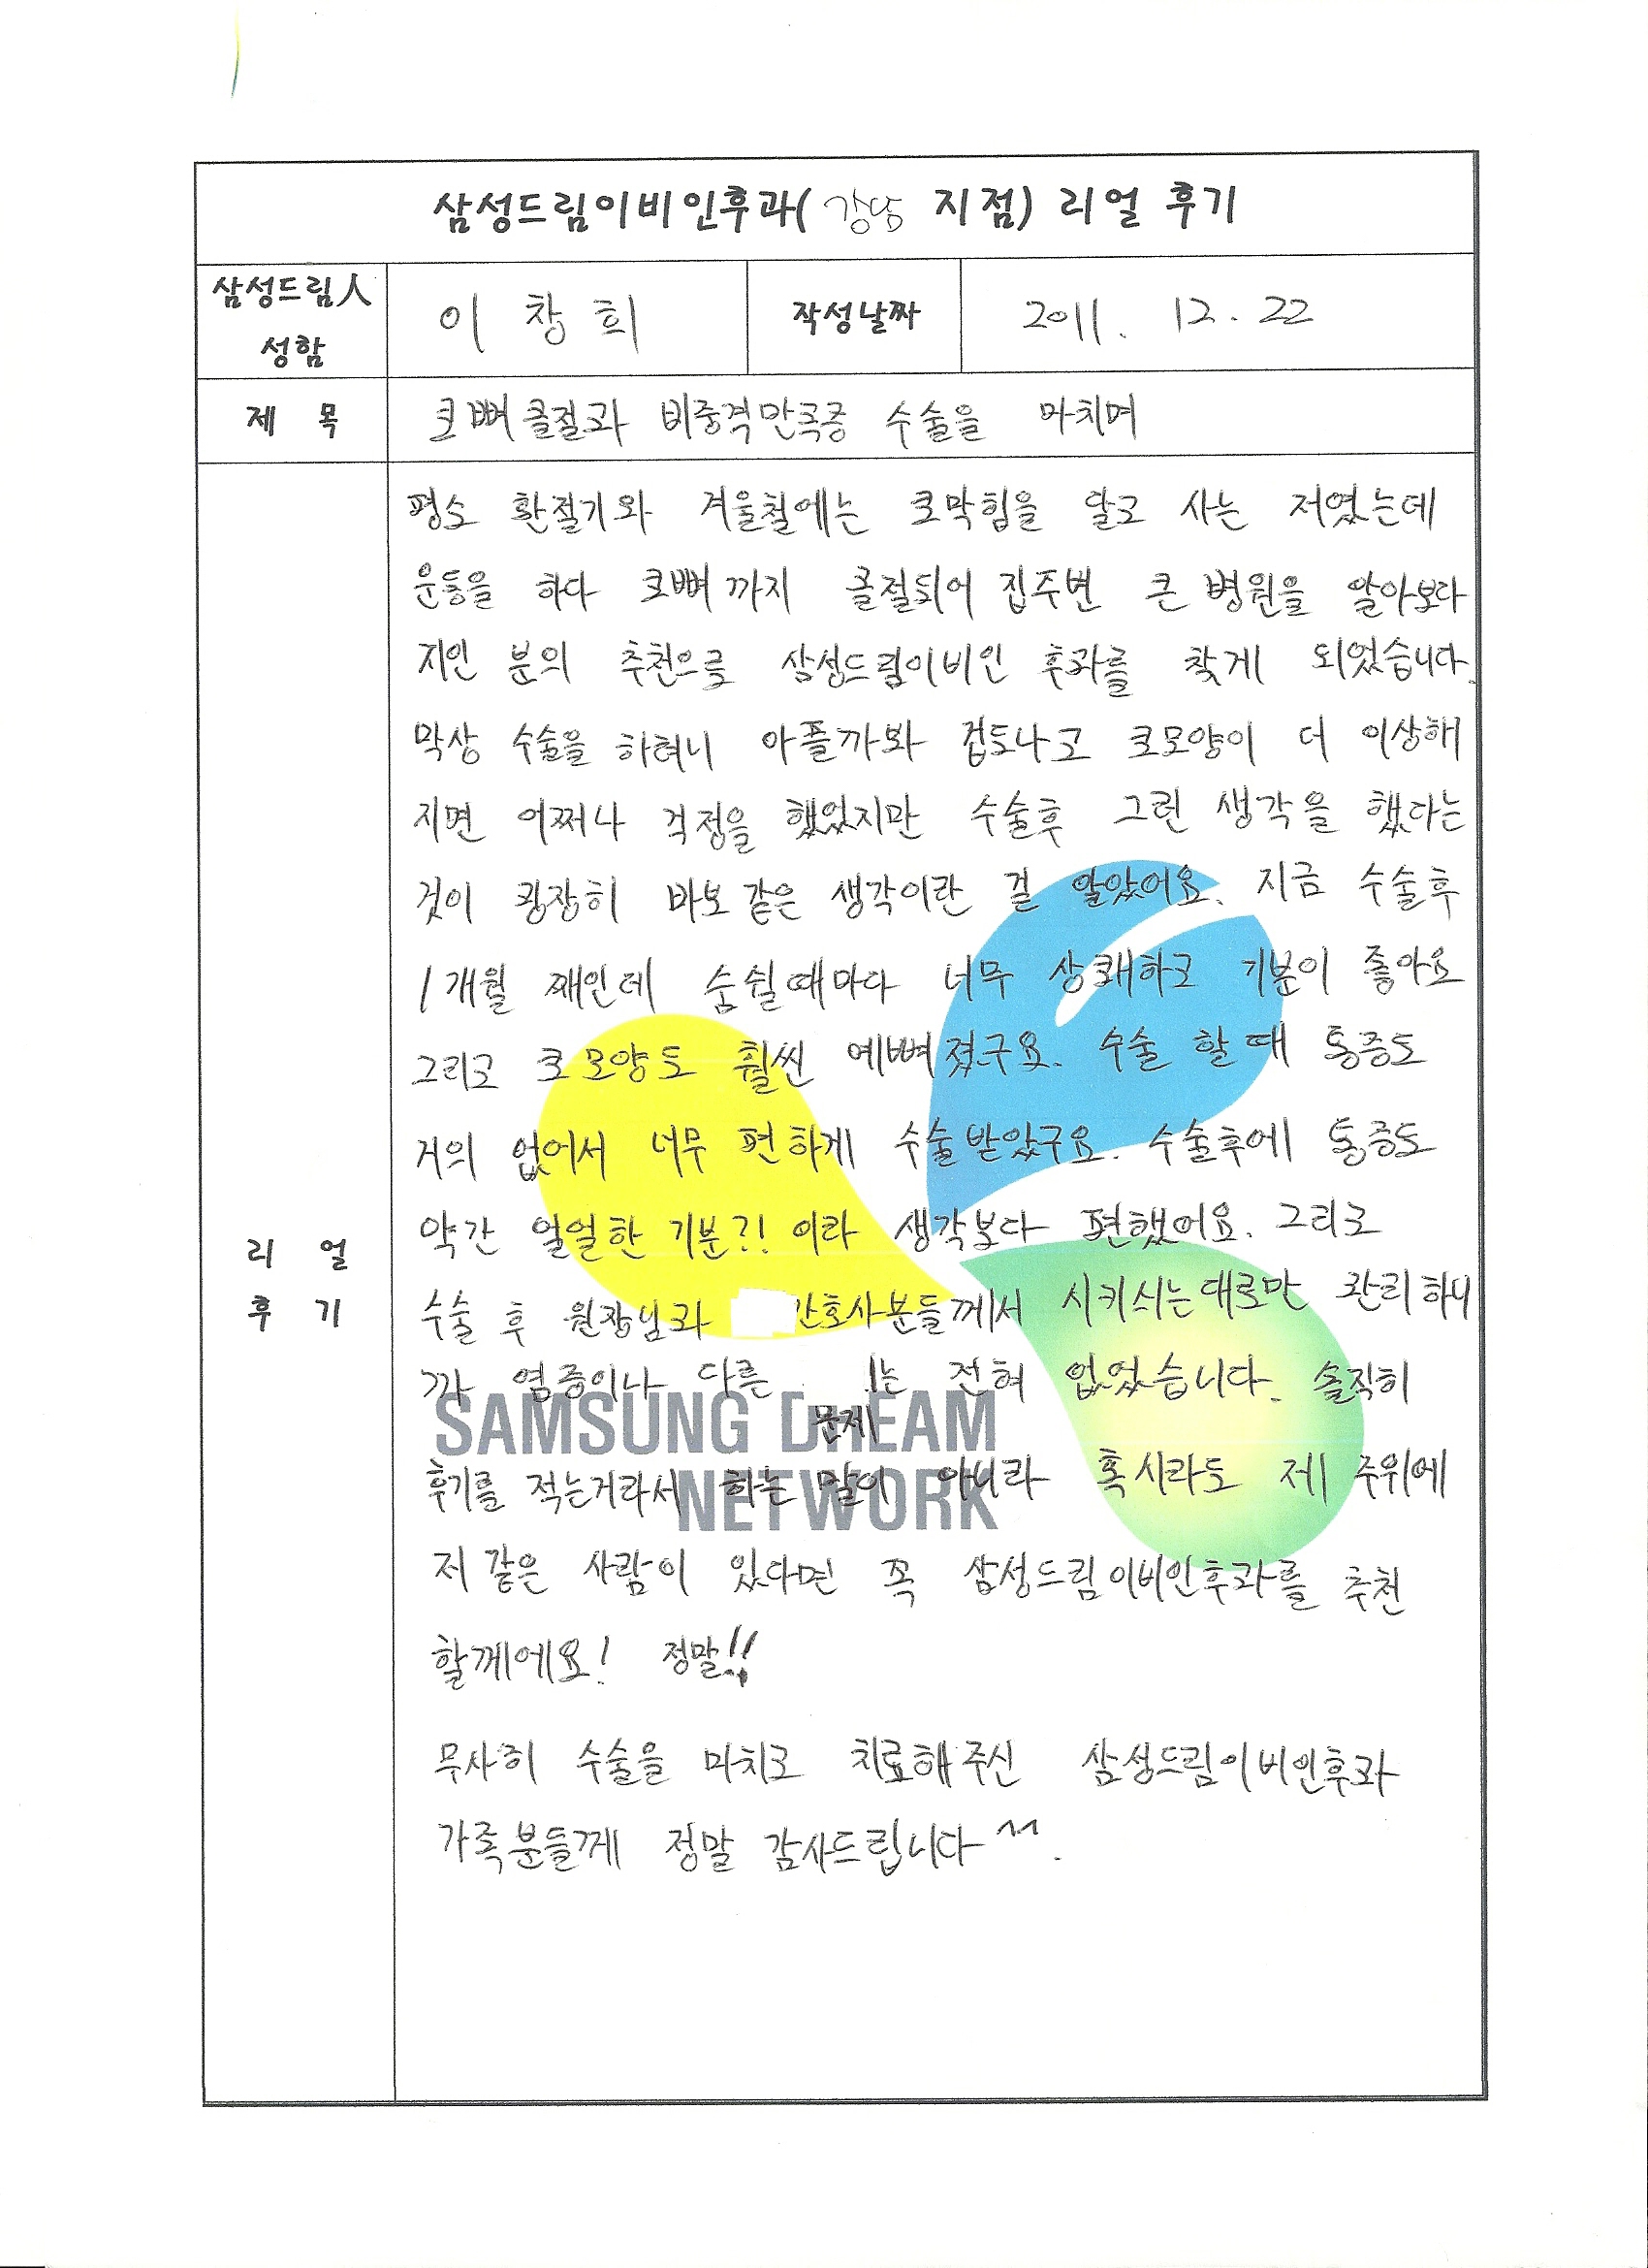 삼성드림이비인후과(강남 지점) 리얼 후기
삼성드림人 성함
이 창 희
작성날짜
2011. 12. 22
제 목
코뼈골절과 비중격만곡증 수술을 마치며
리 얼
후 기
평소 환절기와 겨울철에는 코막힘을 달고 사는 저였는데
운동을 하다 코뼈까지 골절되어 집주변 큰 병원을 알아보다
지인 분의 추천으로 삼성드림이비인후과를 찾게 되었습니다.
막상 수술을 하려니 아플까봐 겁도나고 코모양이 더 이상해
지면 어쩌나 걱정을 했었지만 수술후 그런 생각을 했다는
것이 굉장히 바보같은 생각이란 걸 알았어요. 지금 수술후
1개월 째인데 숨쉴때마다 너무 상쾌하고 기분이 좋아요
그리고 코모양도 훨씬 예뻐졌구요. 수술 할때 통증도
거의 없어서 너무 편하게 수술받았구요. 수술후에 통증도
약간 얼얼한 기분?! 이라 생각보다 편했어요. 그리고
수술 후 원장님과 간호사분들께서 시키시는대로만 관리하니
까 염증이나 다른 문제는 전혀 없었습니다. 솔직히
SAMSUNG DREAM
후기를 적는거라서 하는 말이 아니라 혹시라도 제 주위에
NETWORK
저 같은 사람이 있다면 꼭 삼성드림이비인후과를 추천
할께에요! 정말!!
무사히 수술을 마치고 치료해주신 삼성드림이비인후과
가족분들께 정말 감사드립니다^^.